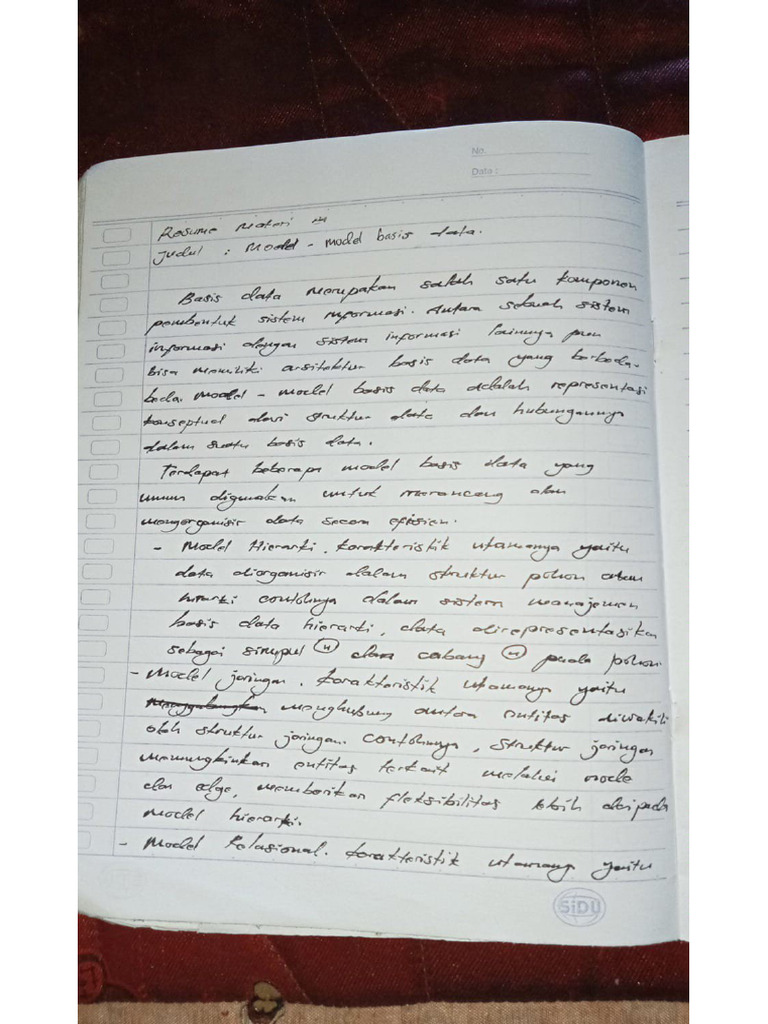 No.
Data :
Resume Materi
Judul : Model - model basis data.
Basis data merupakan salah satu komponen
pembentuk sistem informasi. Antara sebuah sistem
informasi dengan sistem informasi lainnya pun
bisa memiliki arsitektur basis data yang berbeda-
beda. Model - model basis data adalah representasi
konseptual dari struktur data dan hubungannya
dalam suatu basis data.
Terdapat beberapa model basis data yang
umum digunakan untuk merancang dan
mengorganisir data secara efisien.
- Model Hierarki. karakteristik utamanya yaitu
data diorganisir dalam struktur pohon atau
hirarki contohnya dalam sistem manajemen
basis data hierarki, data direpresentasikan
sebagai simpul (4) dan cabang (4) pada pohon
- Model jaringan. karakteristik utamanya yaitu
menghubung antara entitas diwakili
oleh struktur jaringan. contohnya, struktur jaringan
memungkinkan entitas terkait melalui node
dan edge, memberikan fleksibilitas lebih daripada
model hierarki.
- Model Relasional. karakteristik utamanya yaitu
SiDU